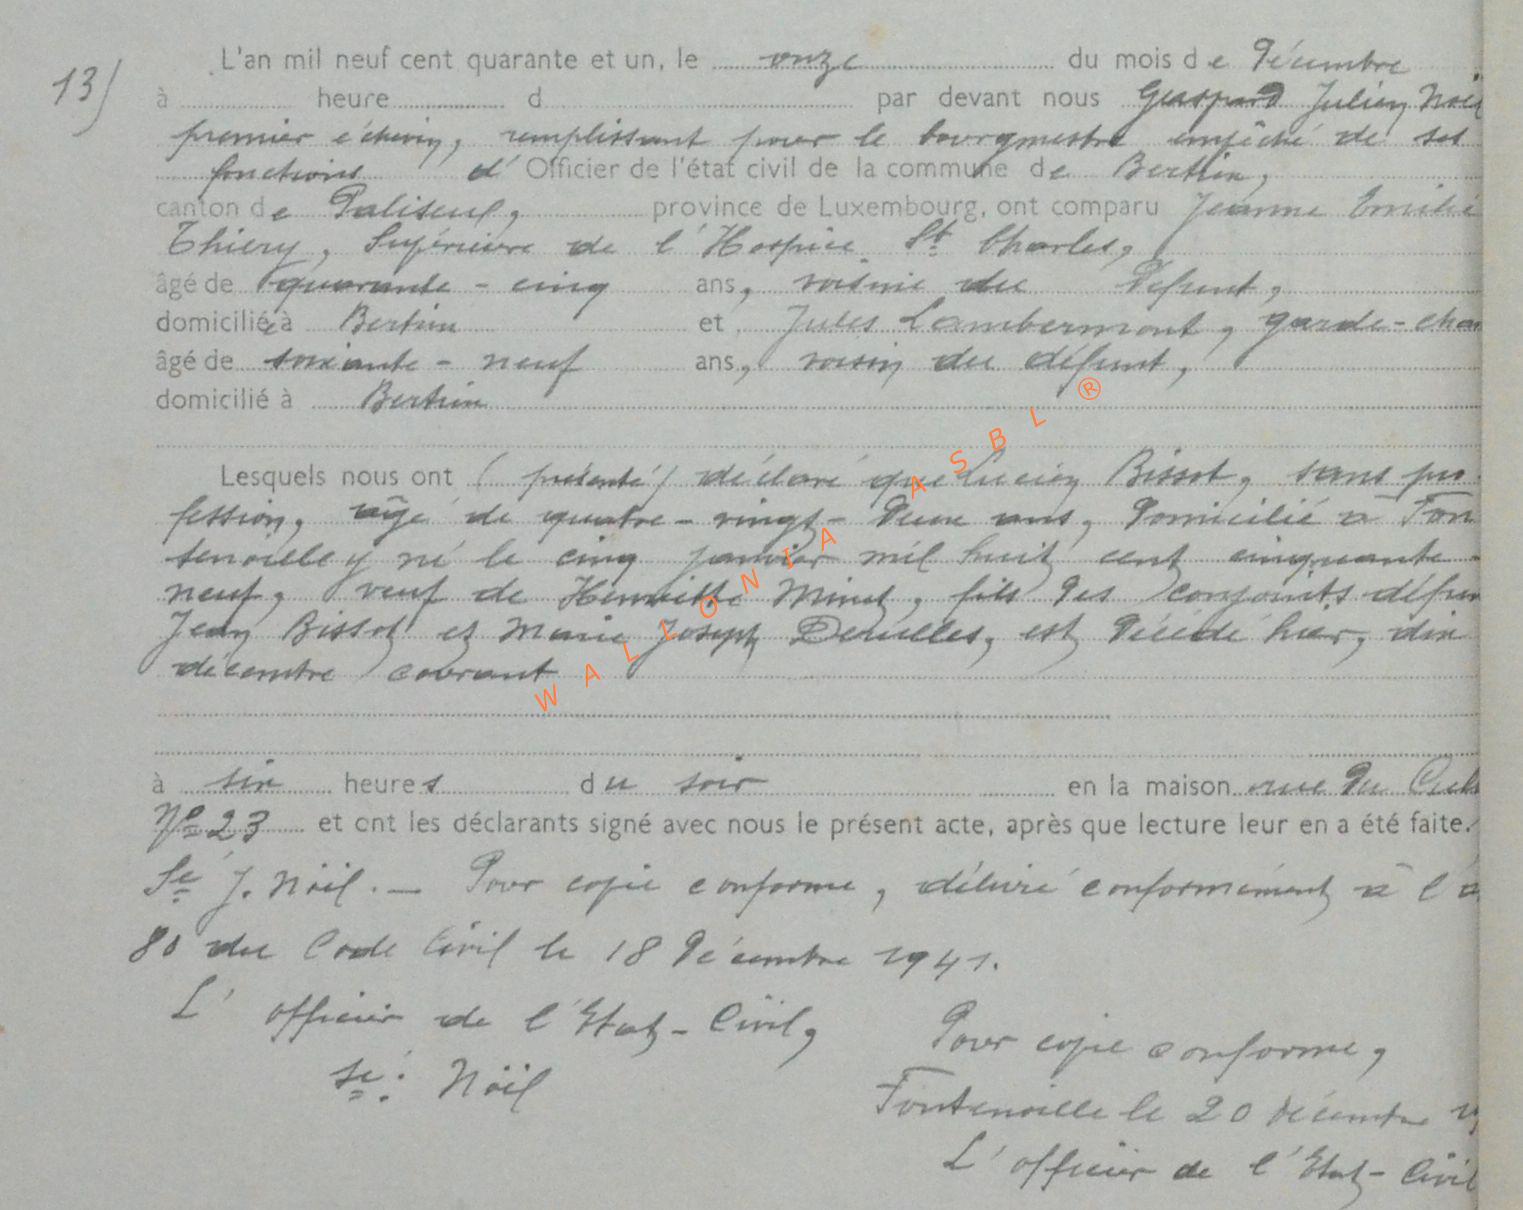 13)
L'an mil neuf cent quarante et un, le onze du mois de Décembre
à heure d par devant nous Gaspard Julien Noël
premier échevin, remplissant pour le bourgmestre empêché de ses
fonctions d'Officier de l'état civil de la commune de Bertrix,
canton de Paliseul, province de Luxembourg, ont comparu Jeanne Emilie
Thiery, Supérieure de l'Hospice St Charles,
âgé de quarante-cinq ans, voisine du Défunt,
domiciliée à Bertrix et Jules Lambermont, garde-cha
âgé de soixante-neuf ans, voisin du défunt,
domicilié à Bertrix
Lesquels nous ont (présenté) déclaré que Lucien Bissot, sans pro
fession, âgé de quatre-vingt-deux ans, Domicilié à Fon
tenoille y né le cinq janvier mil huit cent cinquante
neuf, veuf de Henriette Minet, fils des conjoints défun
Jean Bissot et Marie Joseph est Décédé hier, dix
décembre courant
à six heures du soir en la maison rue Du
No 23 et ont les déclarants signé avec nous le présent acte, après que lecture leur en a été faite.
Sé J. Noël. — Pour copie conforme, délivré conformément à l'a
80 du Code Civil le 18 Décembre 1941.
L'officier de l'Etat-Civil,
sé: Noël
Pour copie conforme,
Fontenoille le 20 décembre 19
L'officier de l'Etat-Civil
WALLONIA ASBL ®